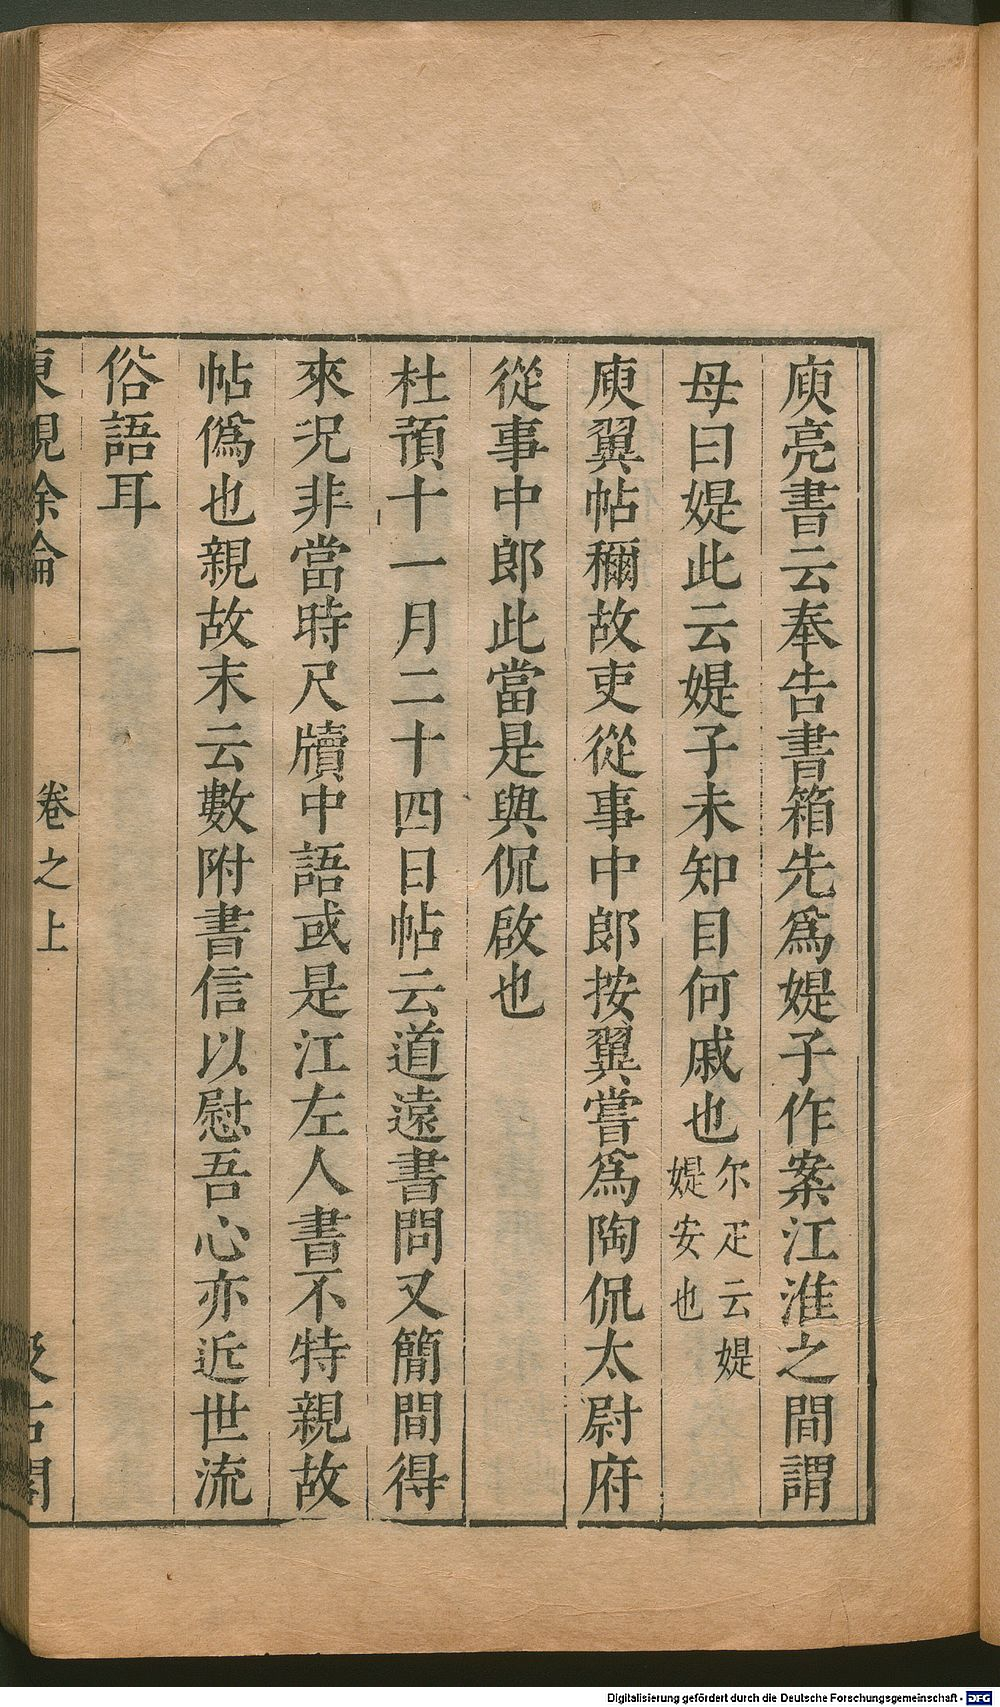 庾亮書云奉告書箱先爲媞子作案江淮之間謂
母曰媞此云媞子未知目何戚也尔疋云媞媞安也
庾翼帖稱故吏從事中郎按翼嘗爲陶侃太尉府
從事中郎此當是與侃啟也
杜預十一月二十四日帖云道遠書問又簡間得
來況非當時尺牘中語或是江左人書不特親故
帖僞也親故末云數附書信以慰吾心亦近世流
俗語耳
東觀餘論 卷之上 汲古閣
Digitalisierung gefördert durch die Deutsche Forschungsgemeinschaft - DFG